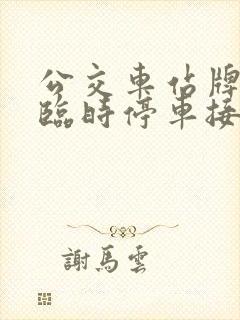 公交車佔牌
臨時停車接
謝馬雲